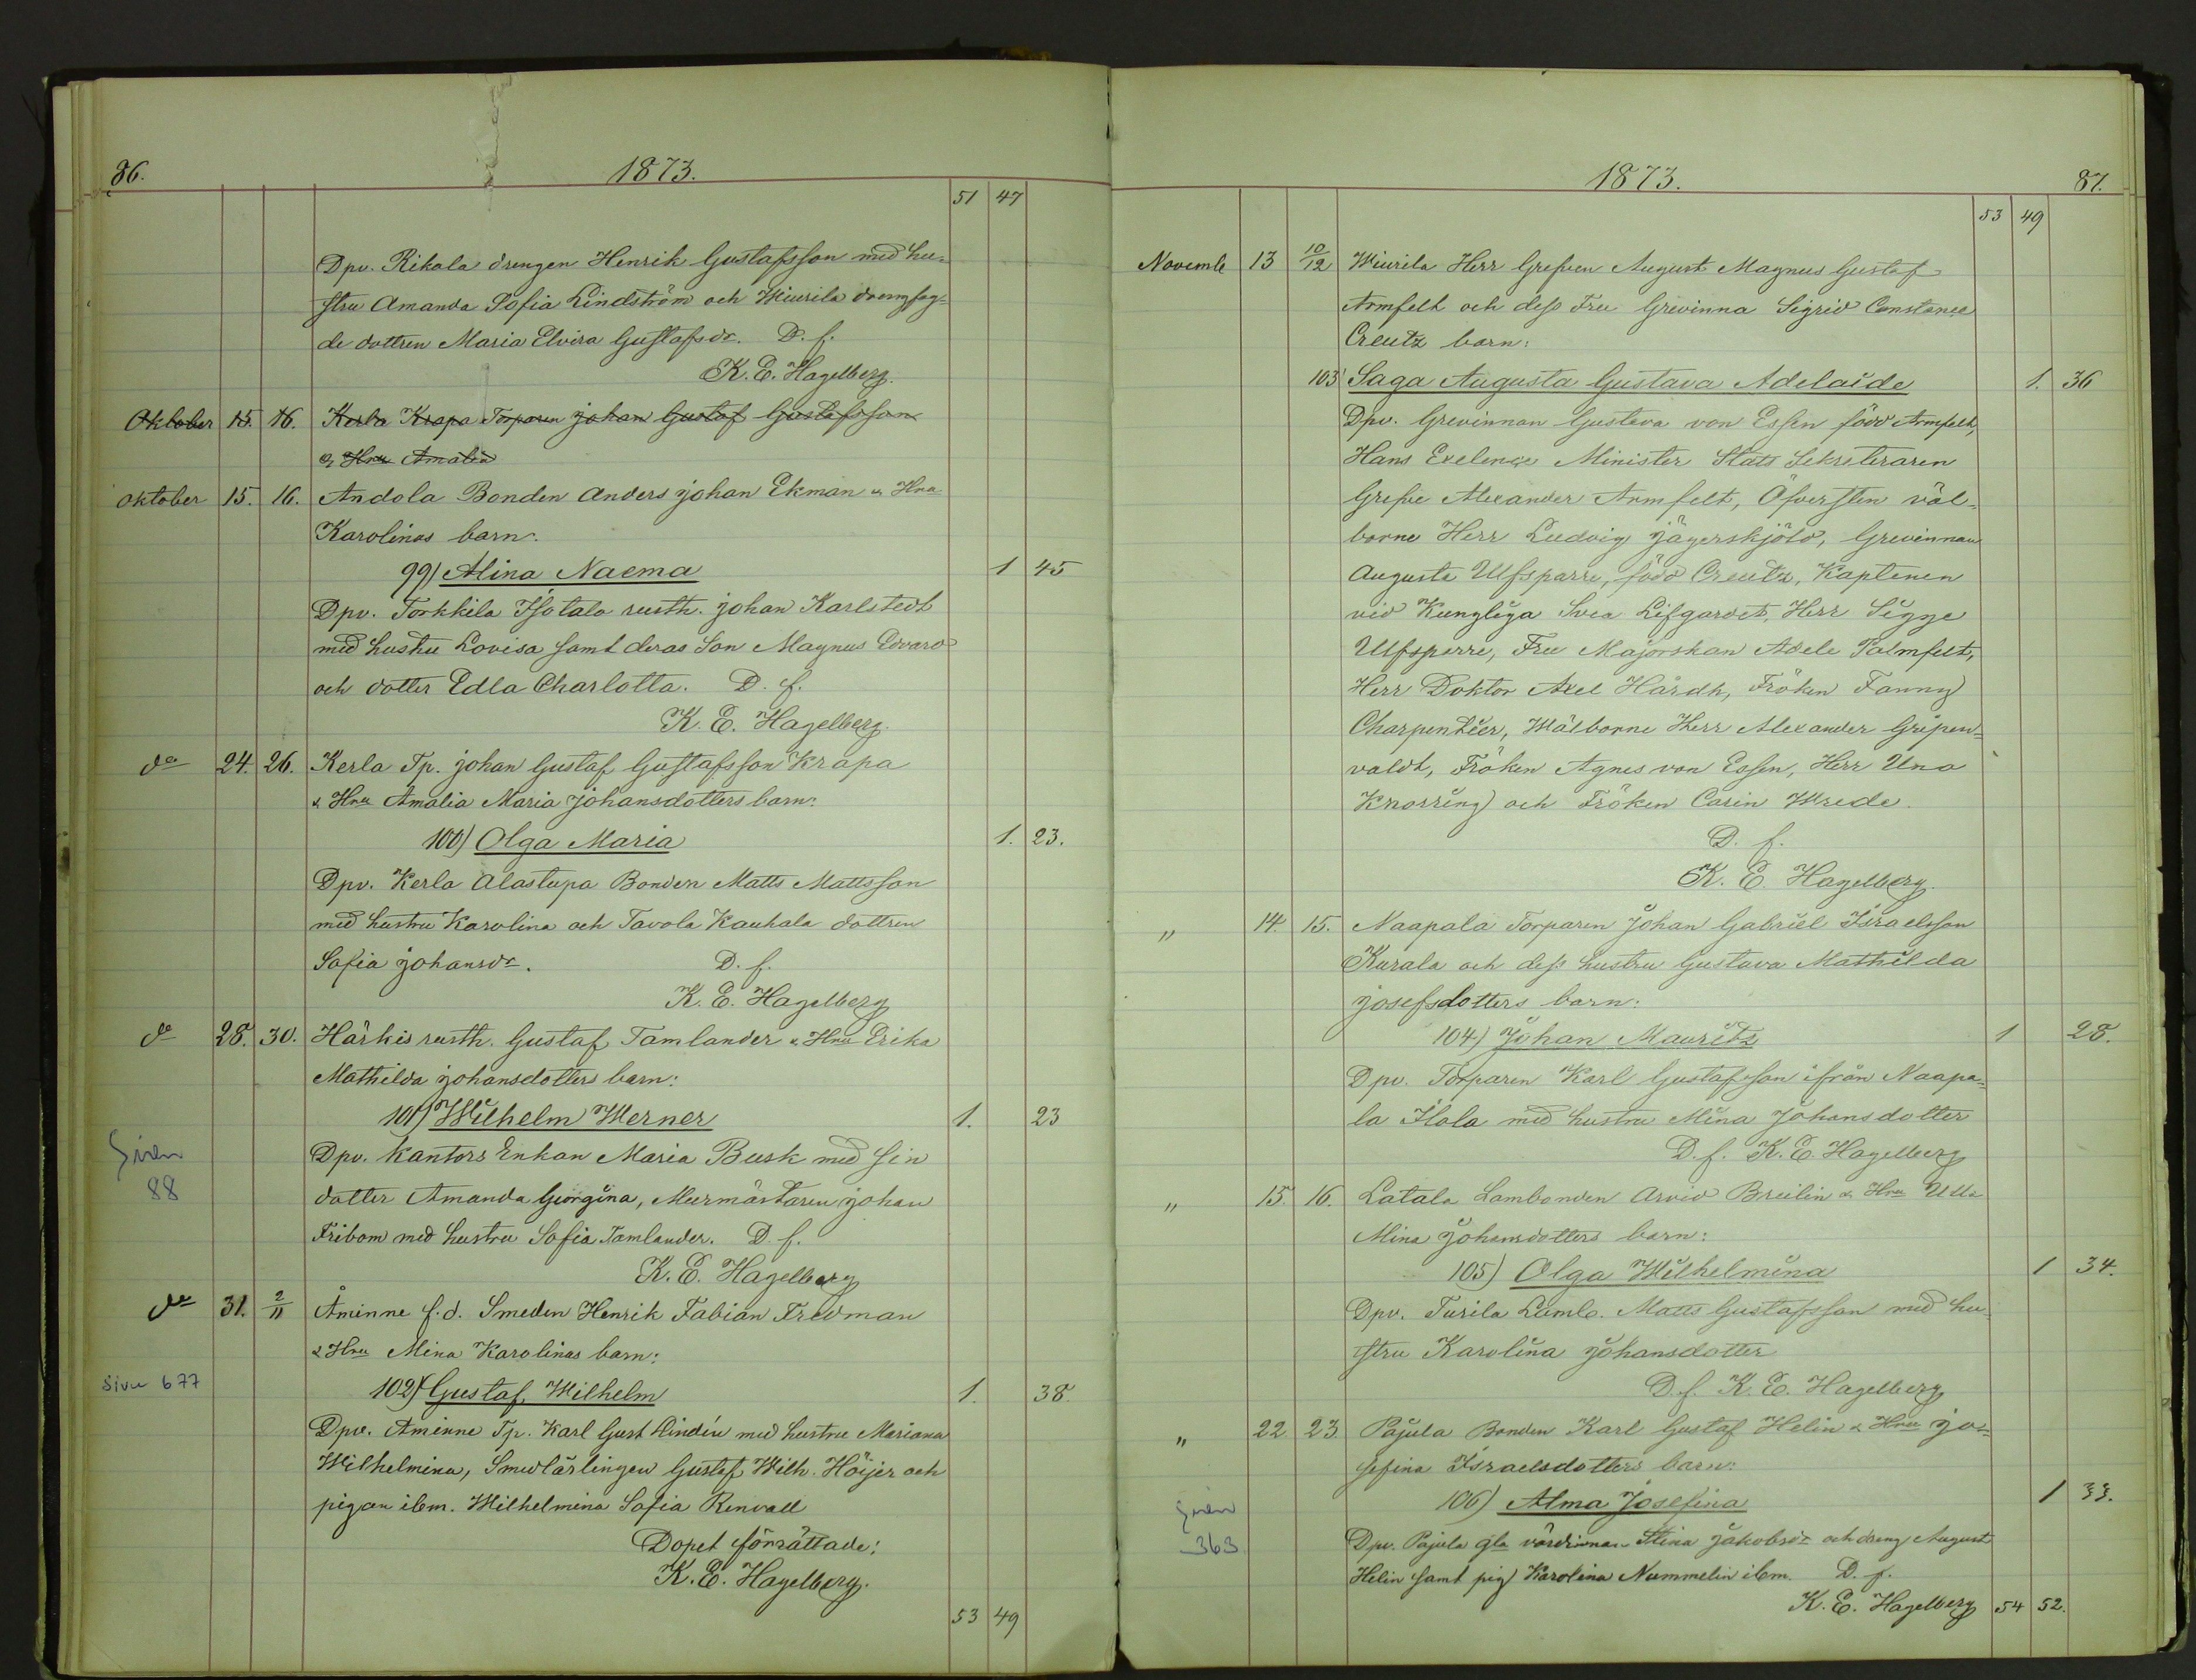 86.
1873.
51 47
Dpv. Rikala drengen Henrik Gustafsson med hu-
stru Amanda Sofia Lindström och Wiurila
de dottren Maria Elvira Gustafsdr. D. f.
K. E. Hagelberg.
Oktober 15. 16. Kerla Krapa Torparen Johan Gustaf Gustafsson
& Hru Amalia
Oktober 15. 16. Andola Bonden Anders Johan Ekman & Hru
Karolinas barn:
99) Alina Naema 1 45
Dpv. Torkkila Isotalo rusth. Johan Karlstedt
med hustru Lovisa samt deras Son Magnus Edvard
och dotter Edla Charlotta. D. f.
K. E. Hagelberg.
do 24. 26. Kerla Tp. Johan Gustaf Gustafsson Krapa
& Hru Amalia Maria Johansdotters barn:
100) Olga Maria 1. 23.
Dpv. Kerla Alastupa Bonden Matts Mattsson
med hustru Karolina och Tavola Kauhala dottren
Sofia Johansdr. D. f.
K. E. Hagelberg
do 28. 30. Härkis rusth. Gustaf Tamlander & Hru Erika
Mathilda Johansdotters barn:
101) Wilhelm Werner 1. 23
Siren
88
Dpv. Kantors Enkan Maria Busk med sin
dotter Amanda Georgina, Murmästaren Johan
Fribom med hustru Sofia Tamlander. D. f.
K. E. Hagelberg
do 31. 2/11 Åminne f.d. Smeden Henrik Fabian Fredman
& Hru Mina Karolinas barn:
Sivu 677
102) Gustaf Wilhelm 1. 38.
Dpv. Aminne Tp. Karl Gust Lindén med hustru Mariana
Wilhelmina, Smedlärlingen Gustaf Wilh. Höijer och
pigan ibm. Wilhelmina Sofia Renvall
Dopet förrättade:
K. E. Hagelberg.
53 49
1873.
87.
53 49
Novemb 13 10/12 Wiurila Herr Grefven August Magnus Gustaf
Armfelt och dess Fru Grevinna Sigrid Constance
Creutz barn:
103 Saga Augusta Gustava Adelaide 1. 36
Dpv. Grevinnan Gustava von Essen född Armfelt,
Hans Exelence Minister Stats Sekreteraren
Grefve Alexander Armfelt, Öfversten väl-
borne Herr Ludvig Jägerskjöld, Grevinnan
Augusta Ulfsparre, född Creutz, Kaptenen
vid Kungliga Svea Lifgardet, Herr Sigge
Ulfsparre, Fru Majorskan Adele Palmfelt,
Herr Doktor Axel Hårdh, Fröken Fanny
Charpentier, Wälborne Herr Alexander Gripen-
valdt, Fröken Agnes von Essen, Herr Uno
Knorring och Fröken Carin Wrede.
D. f.
K. E. Hagelberg.
" 14. 15. Naapala Torparen Johan Gabriel Israelsson
Kurala och dess hustru Gustava Mathilda
Josefsdotters barn:
104) Johan Mauritz 1 28.
Dpv. Torparen Karl Gustafsson ifrån Naapa-
la Ilola med hustru Mina Johansdotter
D. f. K. E. Hagelberg
" 15. 16. Latala Lambonden Arvid Breilin & Hru Ulla
Mina Johansdotters barn:
105) Olga Wilhelmina 1 34.
Dpv. Turila Lamb. Matts Gustafsson med hu-
stru Karolina Johansdotter
D. f. K. E. Hagelberg
" 22 23. Pajula Bonden Karl Gustaf Helin & Hru Jo-
sefina Israelsdotters barn:
106) Alma Josefina 1 33.
Siren
363
Dpv. Pajula gla värdinnan Stina Jakobsdr och dreng August
Helin samt pig Karolina Nummelin ibm. D. f.
K. E. Hagelberg 54 52.